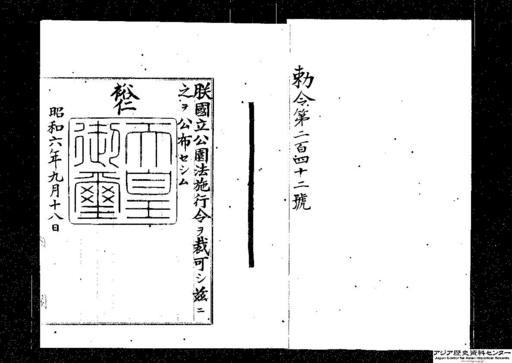 勅令第二百四十二號
朕國立公園法施行令ヲ裁可シ茲ニ
之ヲ公布セシム
裕仁
天皇
御璽
昭和六年九月十八日
アジア歴史資料センター
Japan Center for Asian Historical Records